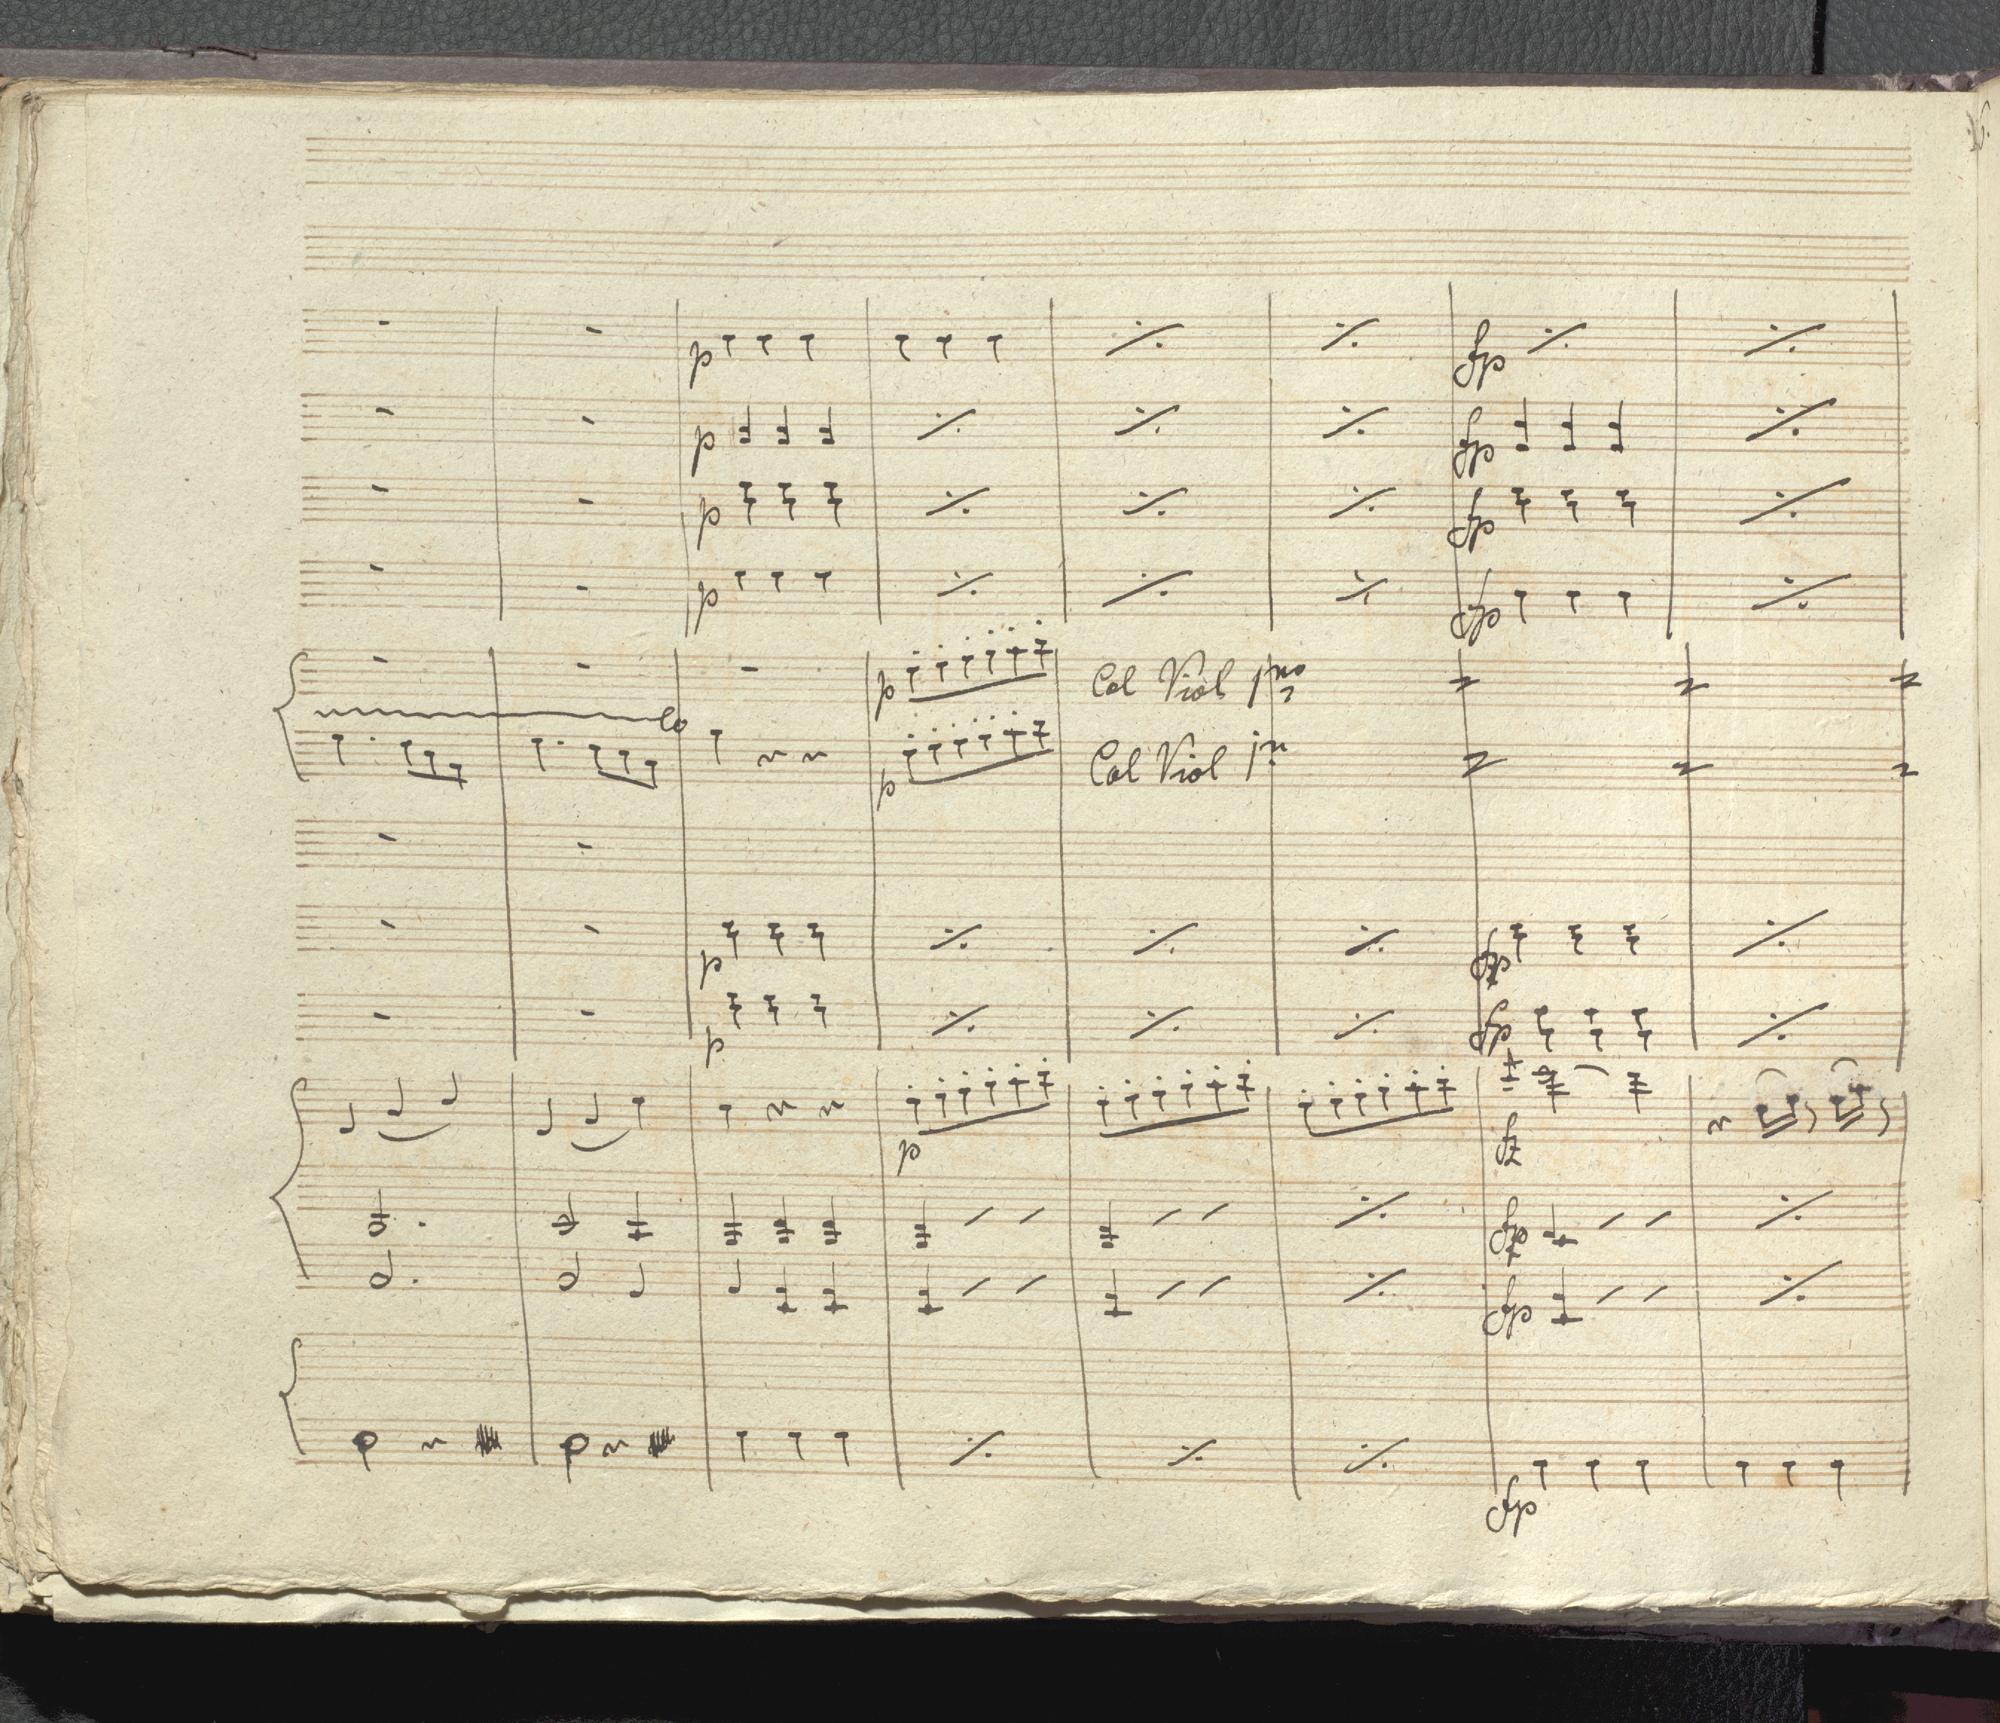 p fp
p fp
p fp
p fp
p Col Viol 1mo
p Col Viol
p fp
p fp
p fz
fp
fp
fp